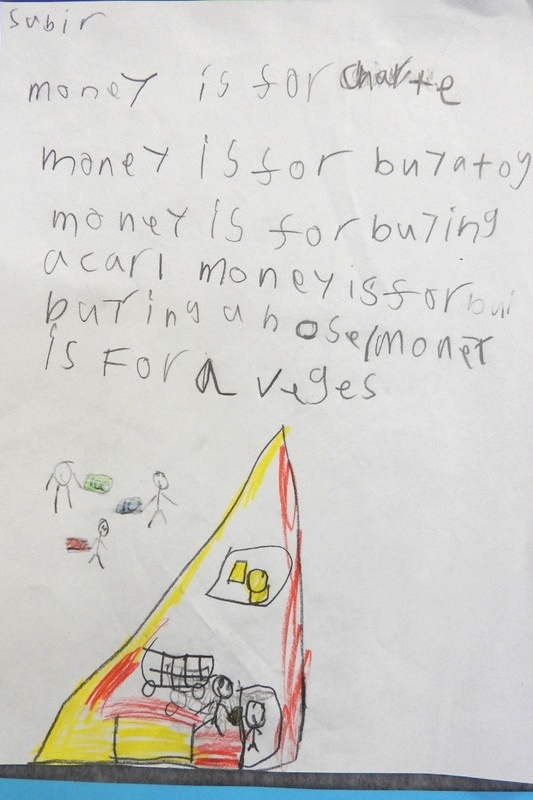 subir
money is for charte
money is for buyatoy
money is for buying
acarl money is for bui
buying a hose/money
is For a veges